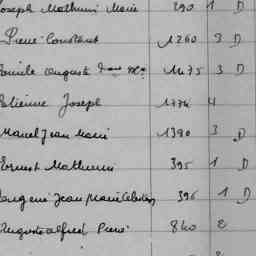 Joseph Mathurin Marie 290 1 D
Pierre Constant 1260 3 D
Emile Auguste 1475 3 D
Etienne Joseph 1774 4
Marcel Jean Marie 1390 3 D
Ernest Mathurin 395 1 D
Eugene Jean Marie Celestin 396 1 D
Auguste Alfred Pierre 840 2